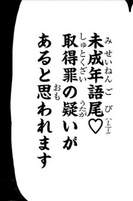 未成年語尾♡
取得罪の疑いが
あると思われます